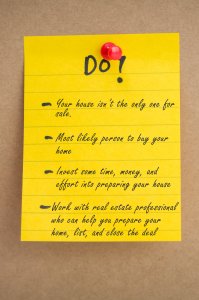 Do!
- Your house isn't the only one for
sale.
- Most likely person to buy your
home
- Invest some time, money, and
effort into preparing your house
- Work with real estate professional
who can help you prepare your
home, list, and close the deal